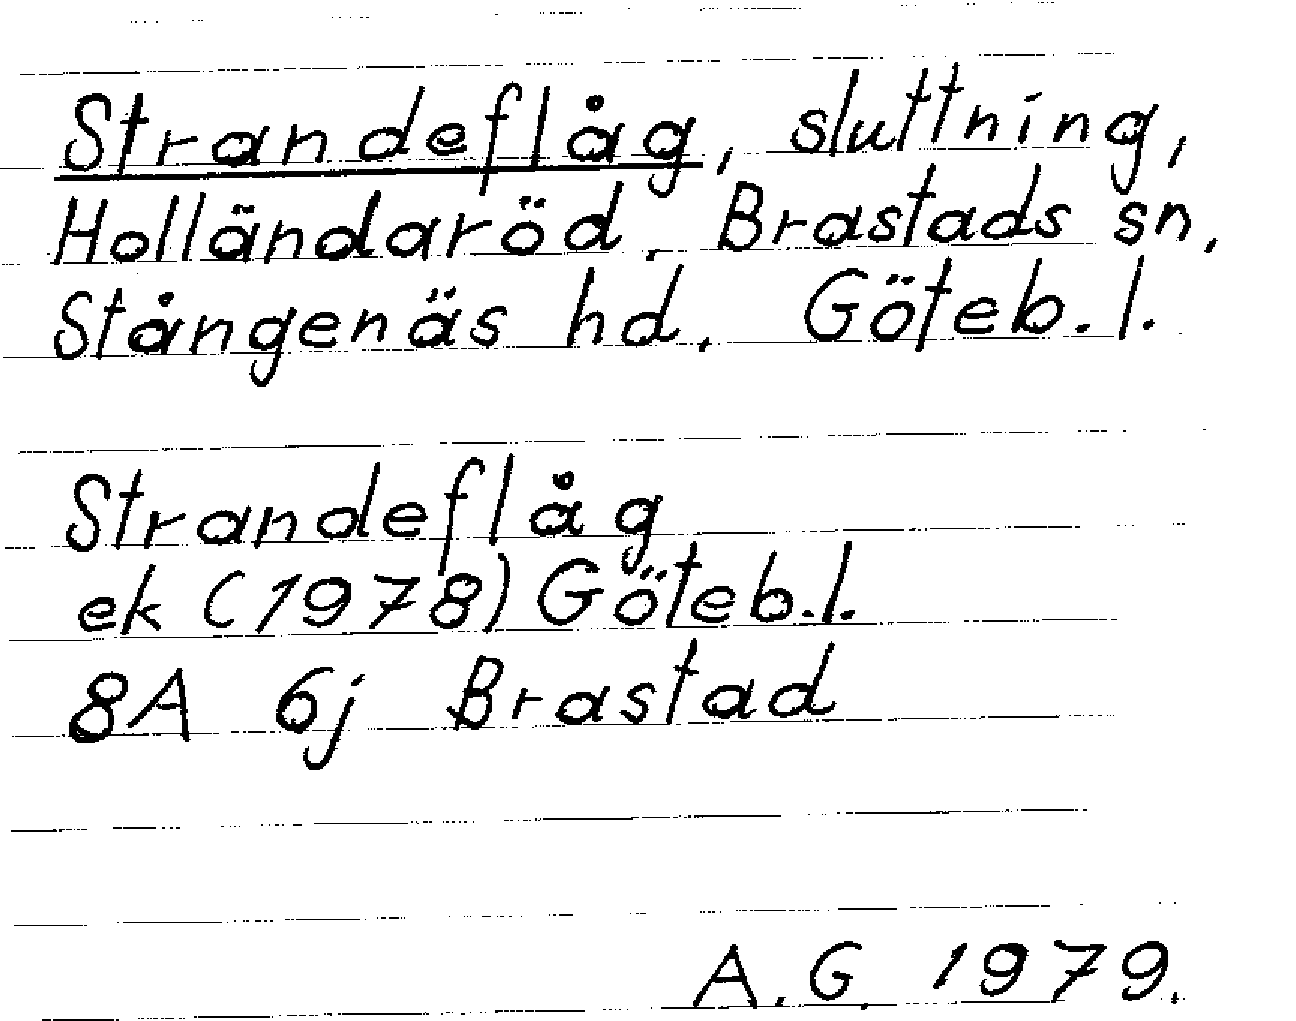 Strandeflåg, sluttning,
Holländaröd, Brastads sn,
Stångenäs hd, Göteb. l.
Strandeflåg
ek (1978) Göteb. l.
8A 6j Brastad
A. G. 1979.